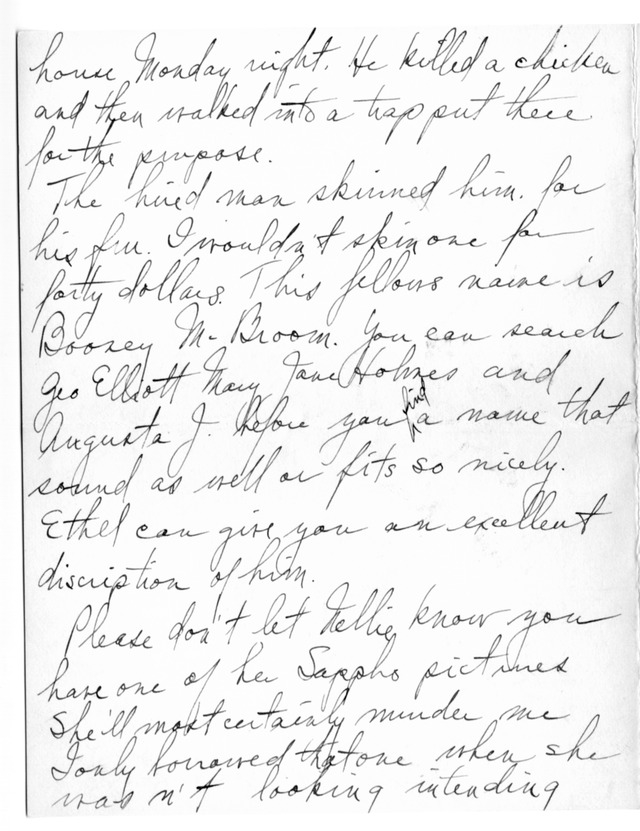 house Monday night. He killed a chicken
and then walked into a trap put there
for the purpose.
The hired man skinned him. for
his fur. I wouldn't skin one for
forty dollars. This fellows name is
Boozey Mc Broom. You can search
Geo Elliott Mary Jane Holmes and
Augusta J. before you find a name that
sound as well or fits so nicely.
Ethel can give you an excellent
discription of him.
Please don't let Nellie know you
have one of her Sappho pictures
She'll most certainly murder me
I only borrowed that one when she
was n't looking intending